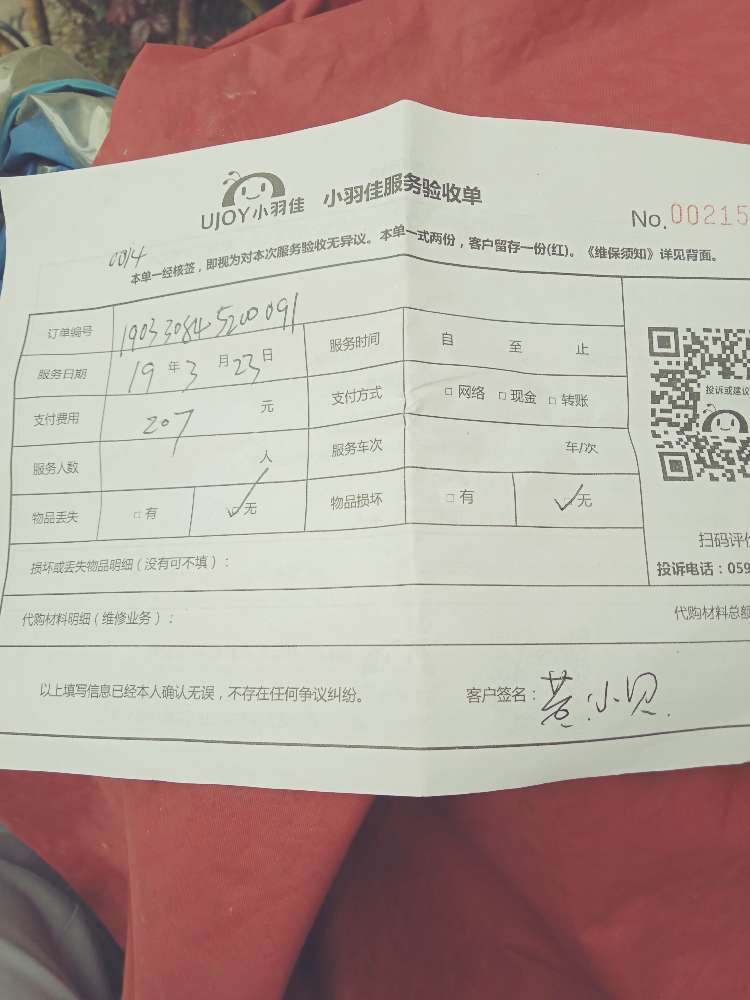 UJOY小羽佳 小羽佳服务验收单
No.00215
0014
本单一经核签，即视为对本次服务验收无异议。本单一式两份，客户留存一份(红)。《维保须知》详见背面。
订单编号 190330845200091
服务日期 19年3月23日 服务时间 自 至 止
支付费用 207元 支付方式 □网络 □现金 □转账
服务人数 人 服务车次 车/次
物品丢失 □有 ☑无 物品损坏 □有 ☑无
投诉或建议
扫码评价
投诉电话：059
损坏或丢失物品明细（没有可不填）：
代购材料明细（维修业务）： 代购材料总额
以上填写信息已经本人确认无误，不存在任何争议纠纷。 客户签名：黄小贝